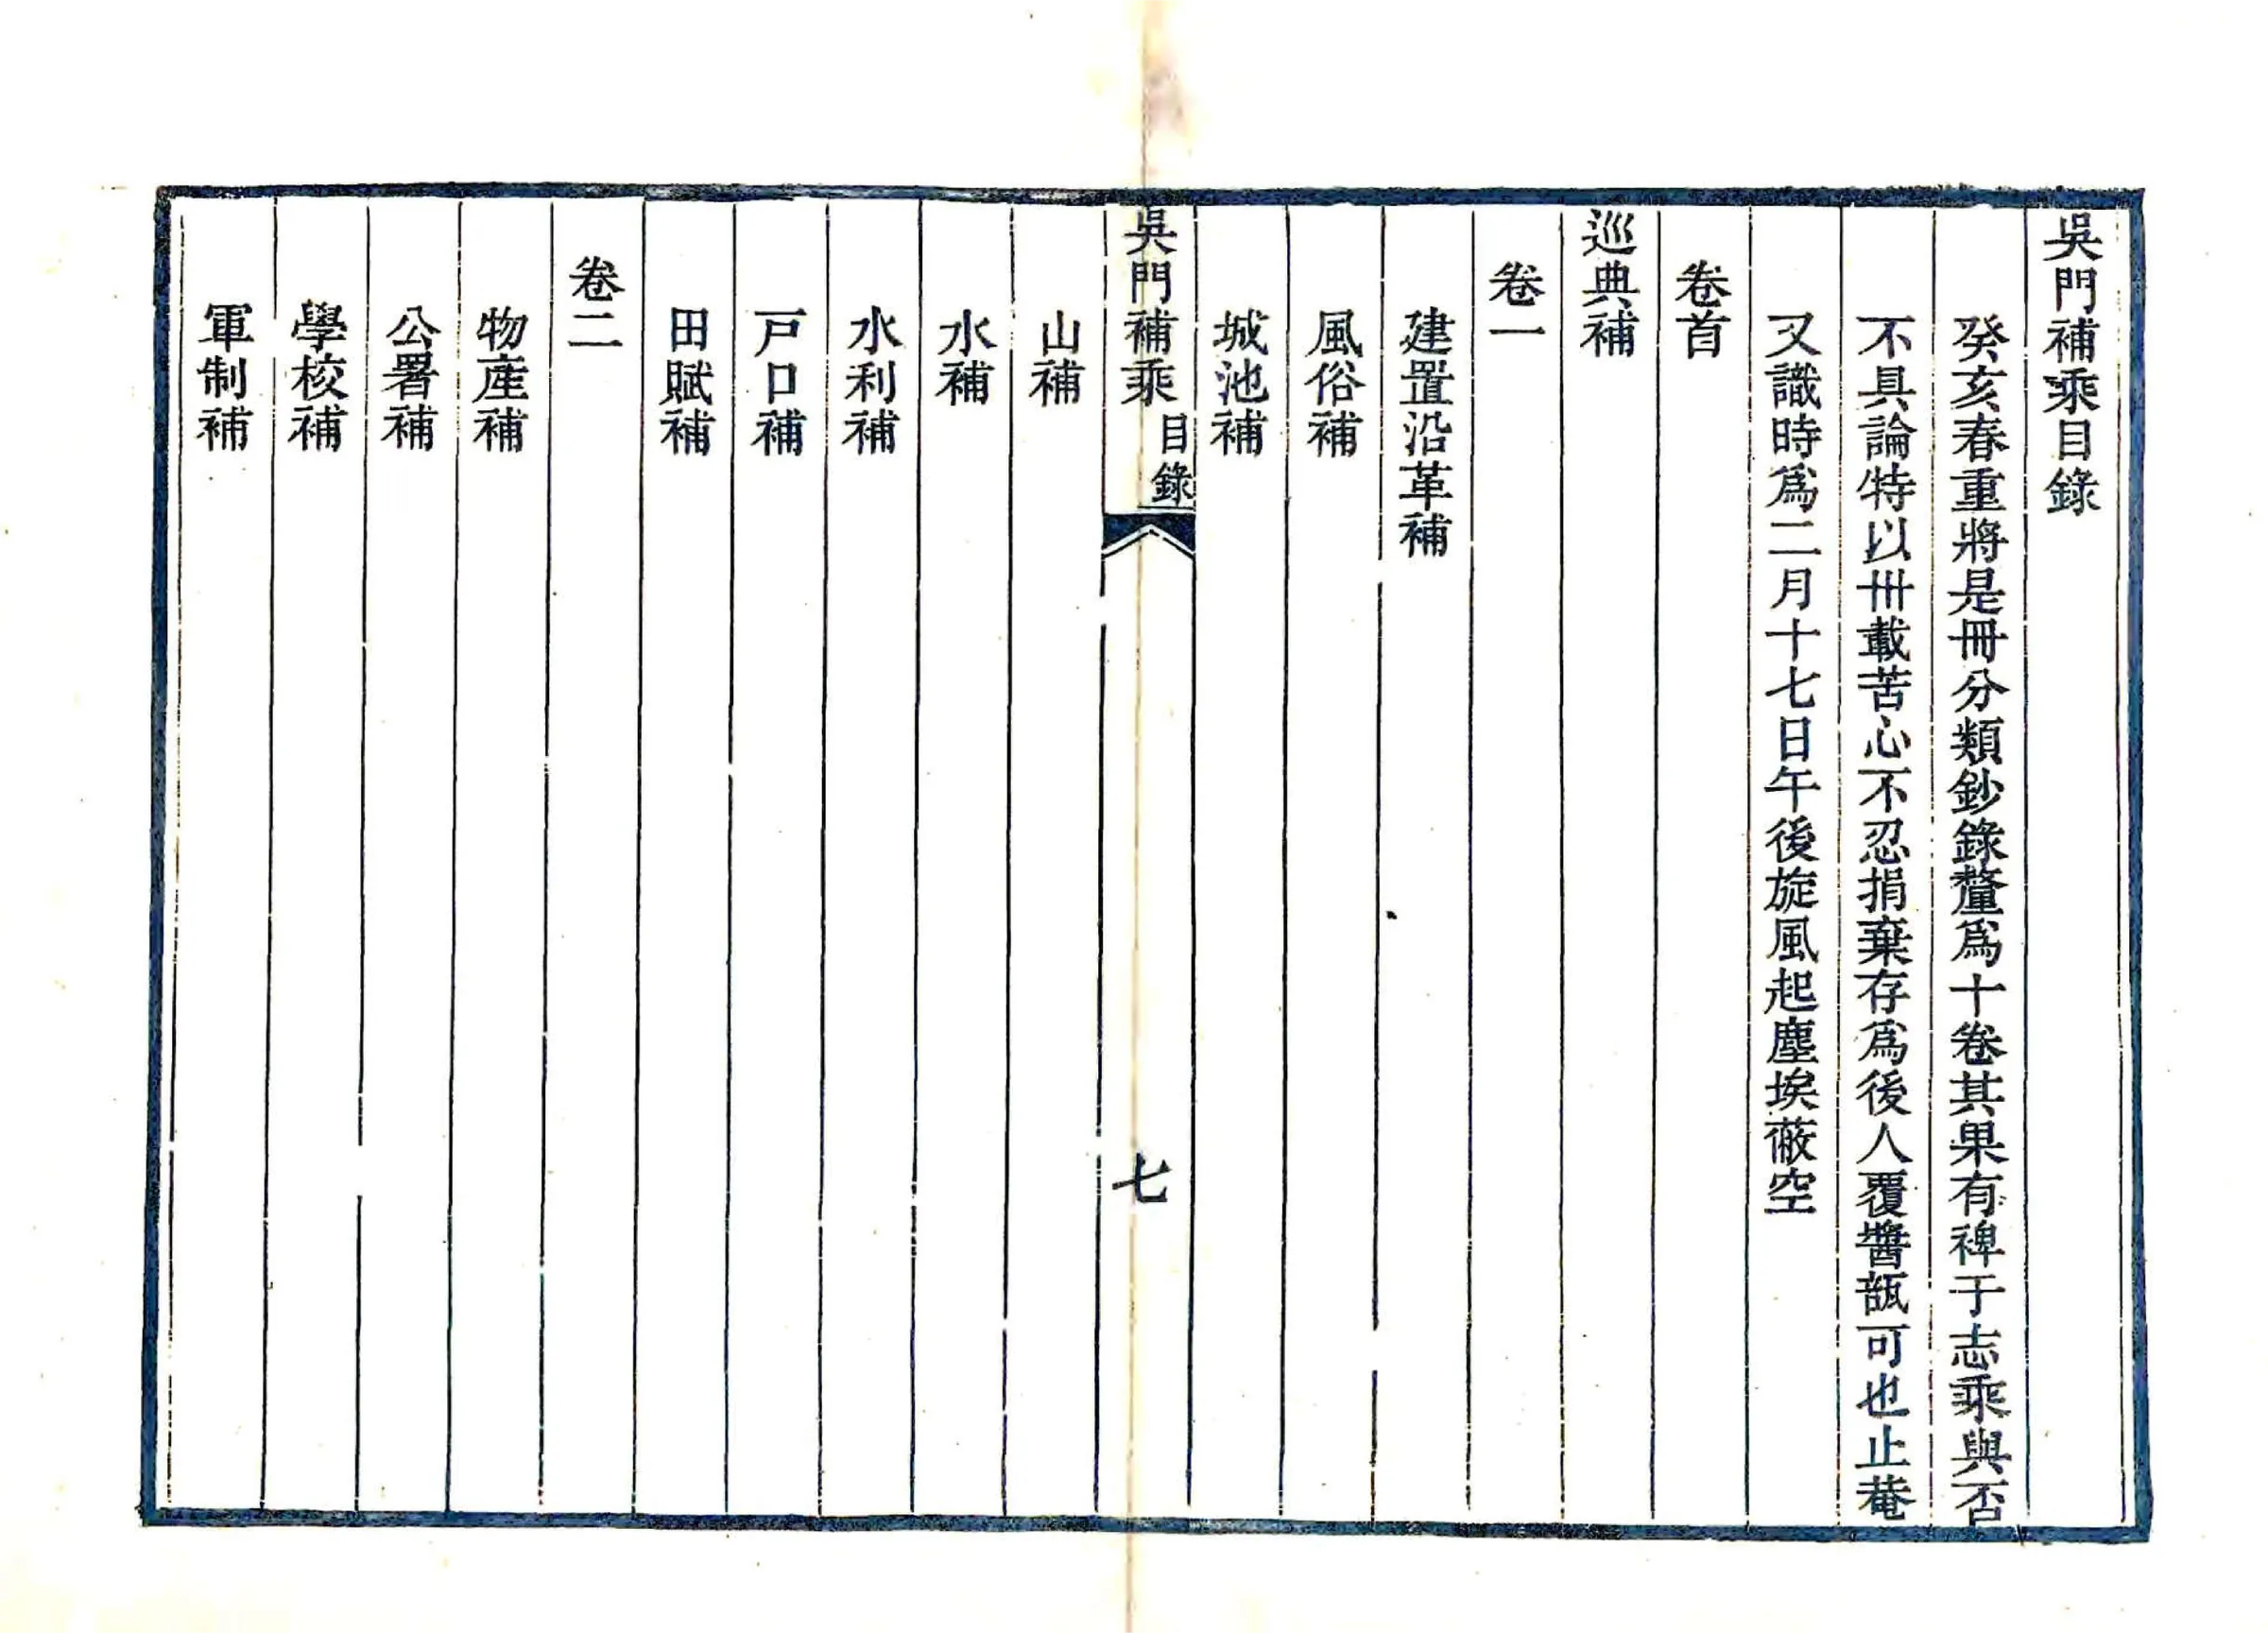 吳門補乘目錄
癸亥春重將是冊分類鈔錄釐爲十卷其果有裨于志乘與否
不具論特以卅載苦心不忍捐棄存爲後人覆醬瓿可也止菴
又識時爲二月十七日午後旋風起塵埃蔽空
卷首
巡典補
卷一
建置沿革補
風俗補
城池補
吳門補乘 目錄 七
山補
水補
水利補
戸口補
田賦補
卷二
物產補
公署補
學校補
軍制補